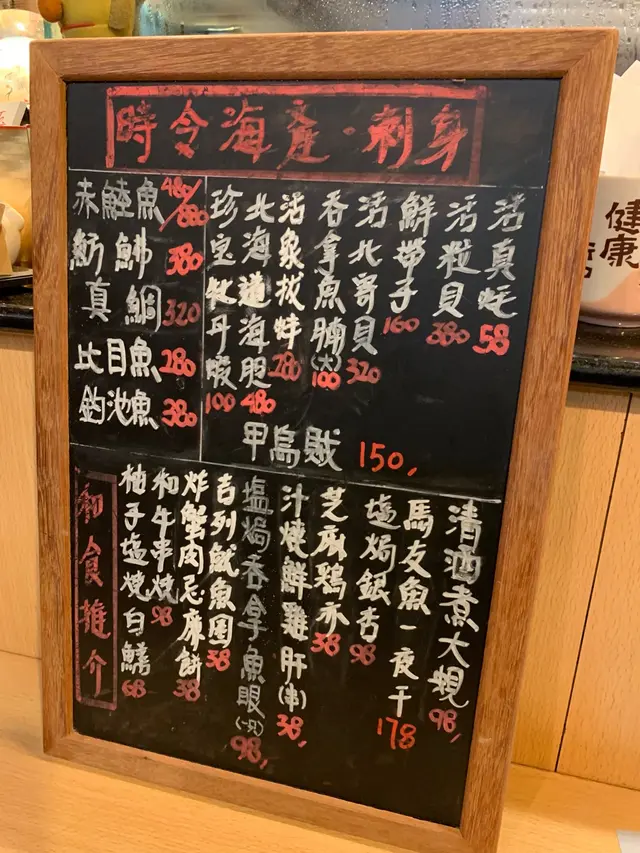 時令海產·刺身
活真蚝 58
活粒貝 380
鮮帶子 160
活北寄貝 320
吞拿魚腩(大) 100
活象拔蚌 280
北海道海胆 480
珍宝牡丹蝦 100
甲烏賊 150,
赤鯥魚 480/880
魴鮄 380
真鯛 320
比目魚 280
鈎池魚 380
和食推介
清酒煮大蜆 98,
馬友魚一夜干 178
塩焗銀杏 98
芝麻鶏亦 38
汁燒鮮雞肝(串) 38,
塩焗吞拿魚眼(一只) 98,
吉列魷魚圈 38
炸蟹肉忌廉餅 38
和牛串燒 98
柚子塩燒白鱔 68
健康